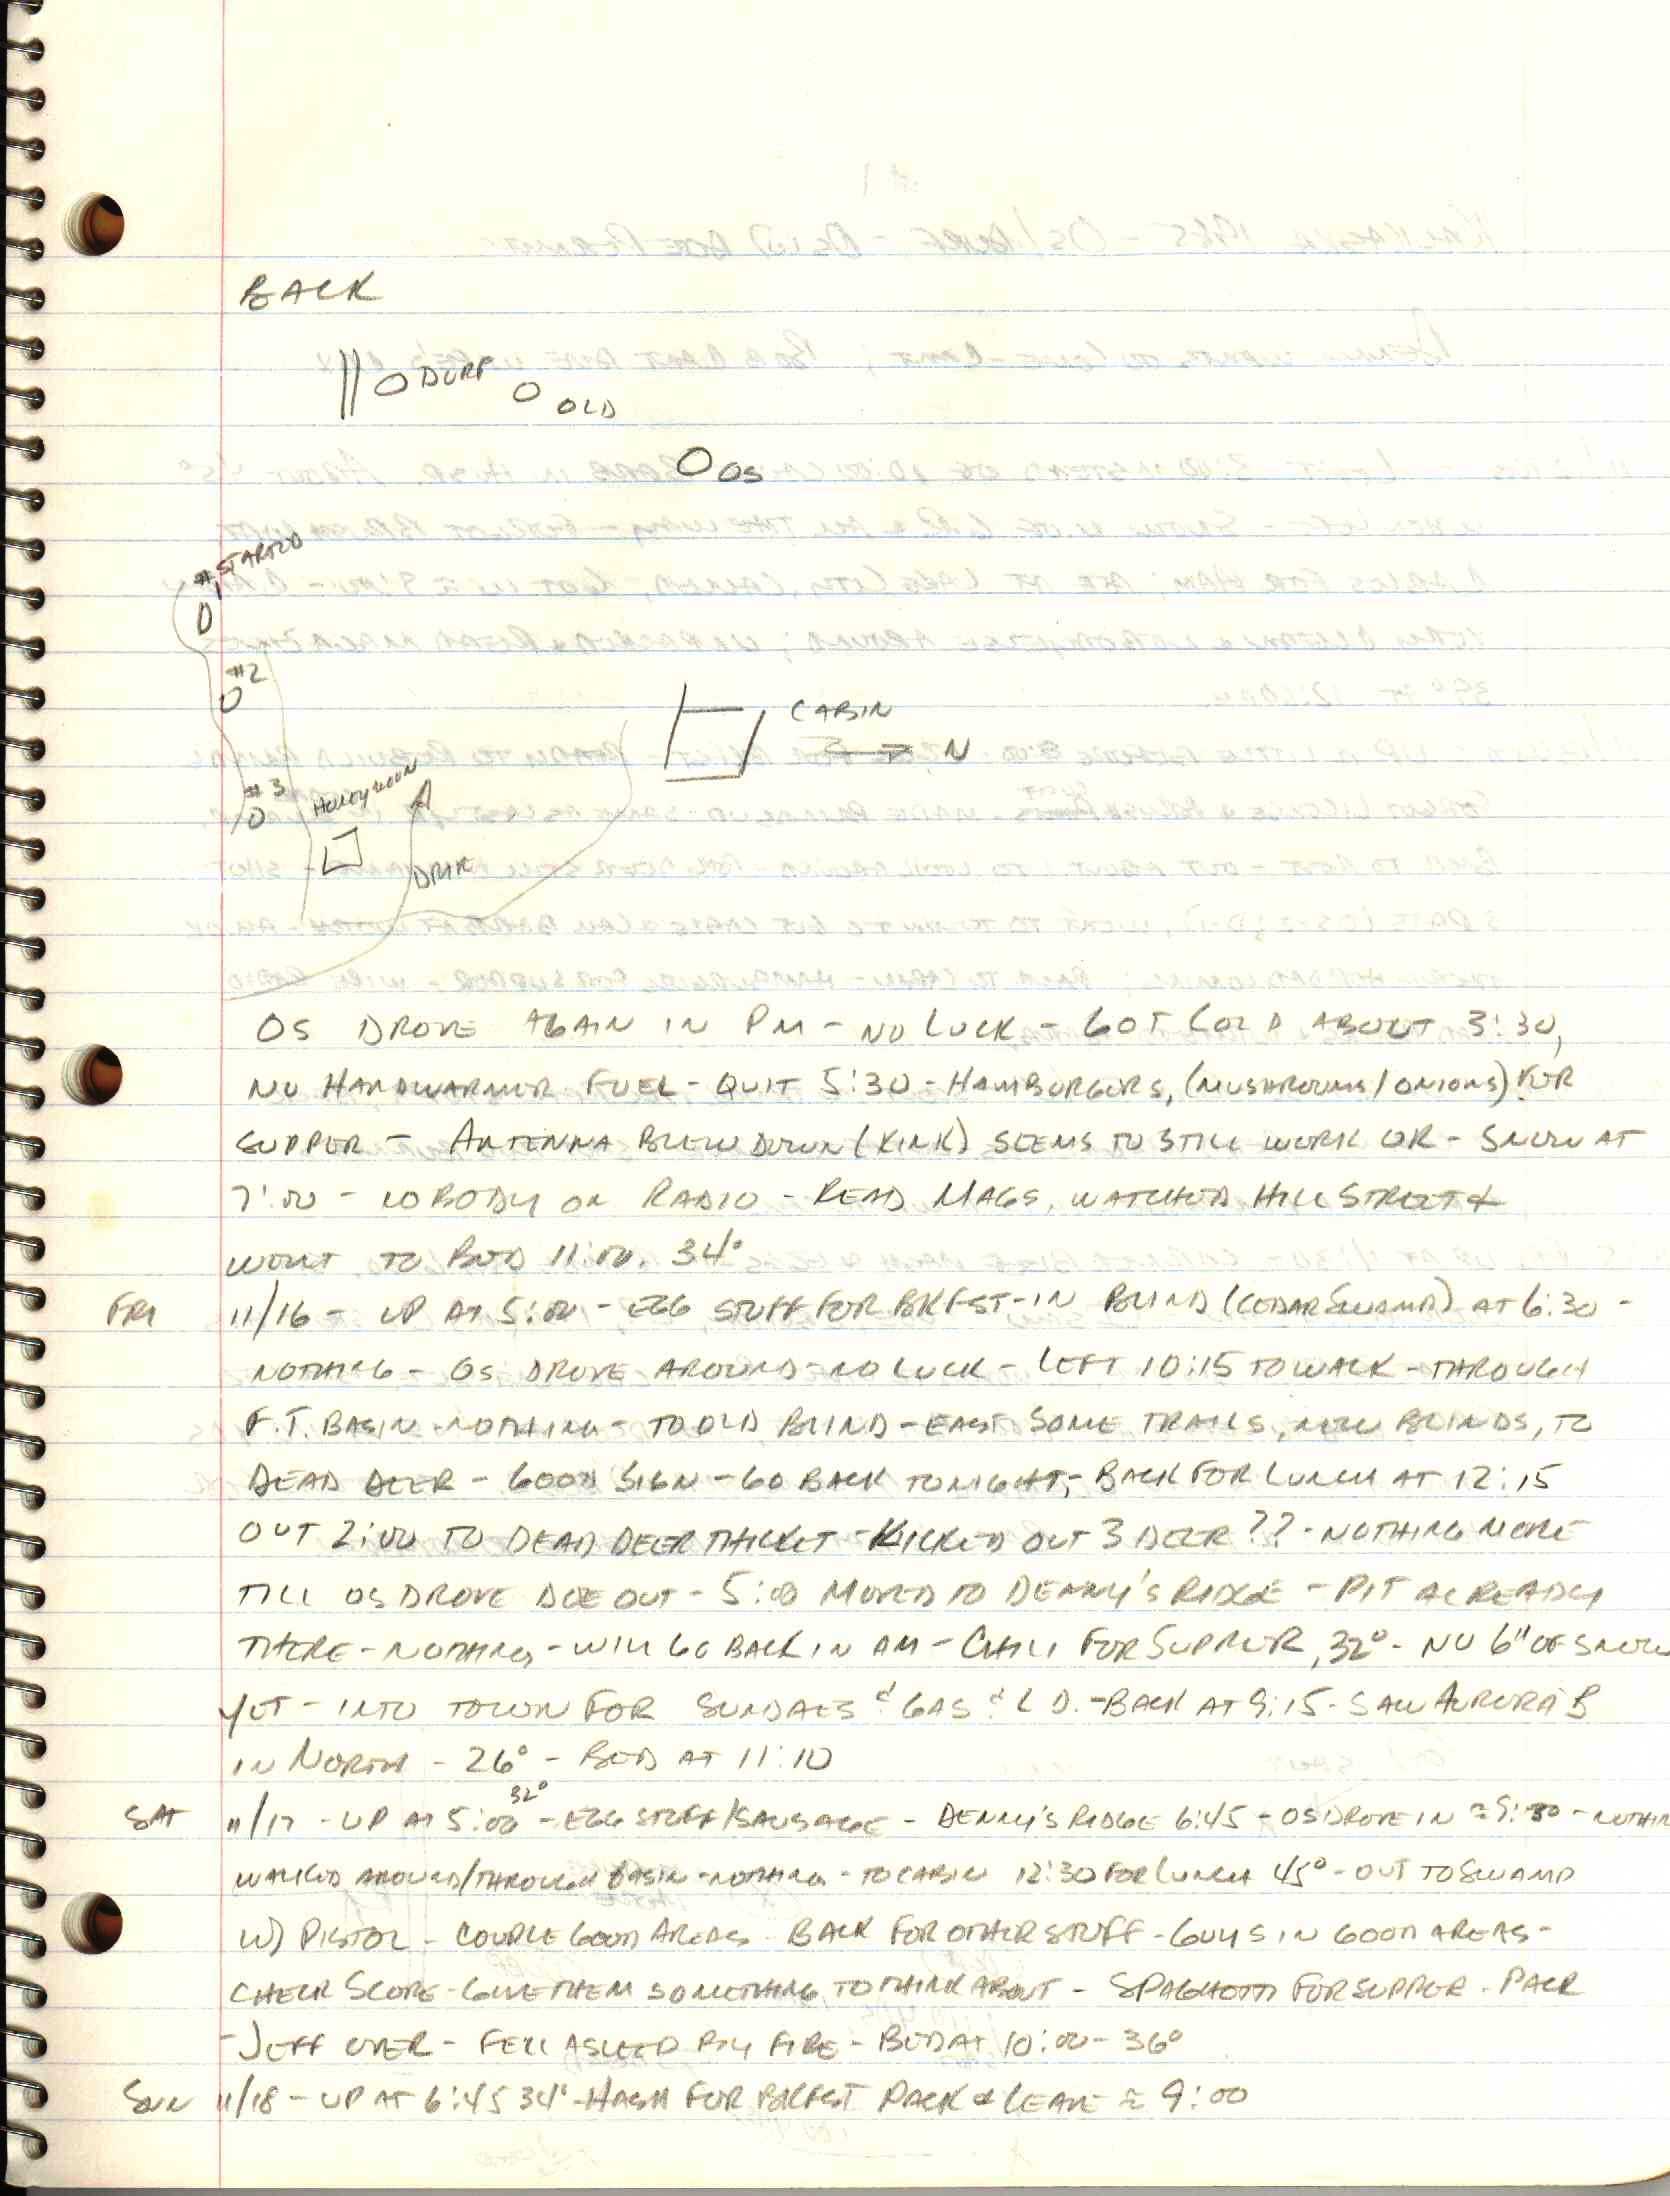 BACK
DURF
OLD
OS
#1 STARTED
#2
#3
HONEYMOON
CABIN
N
DRIVE
OS DROVE AGAIN IN PM - NO LUCK - GOT COLD ABOUT 3:30,
NO HANDWARMER FUEL - QUIT 5:30 - HAMBURGERS, (MUSHROOMS/ONIONS) FOR
SUPPER - ANTENNA BLEW DOWN (KINK) SEEMS TO STILL WORK OK - SNOW AT
7:00 - NOBODY ON RADIO - READ MAGS, WATCHED HILL STREET &
WENT TO BED 11:00. 34°
FRI 11/16 - UP AT 5:00 - EGG STUFF FOR BKFST - IN BLIND (CEDAR SWAMP) AT 6:30 -
NOTHING - OS DROVE AROUND - NO LUCK - LEFT 10:15 TO WALK - THROUGH
F.T. BASIN - NOTHING - TO OLD BLIND - EAST SOME TRAILS, NEW BLINDS, TO
DEAD DEER - GOOD SIGN - GO BACK TONIGHT, - BACK FOR LUNCH AT 12:15
OUT 2:00 TO DEAD DEER THICKET - KICKED OUT 3 DEER ?? - NOTHING MORE
TILL OS DROVE DOE OUT - 5:00 MOVED TO DENNY'S RIDGE - PIT ALREADY
THERE - NOTHING - WILL GO BACK IN AM - CHILI FOR SUPPER, 32° - NO 6" OF SNOW
YET - INTO TOWN FOR SUNDAES & GAS & L.D. - BACK AT 9:15 - SAW AURORA B
IN NORTH - 26° - BED AT 11:10
SAT 11/17 - UP AT 5:00 32° - EGG STUFF/SAUSAGE - DENNY'S RIDGE 6:45 - OS DROVE IN ≈ 9:30 - NOTHIN
WALKED AROUND/THROUGH BASIN - NOTHING - TO CABIN 12:30 FOR LUNCH 45° - OUT TO SWAMP
W) PISTOL - COUPLE GOOD AREAS - BACK FOR OTHER STUFF - GUYS IN GOOD AREAS -
CHECK SCORE - GIVE THEM SOMETHING TO THINK ABOUT - SPAGHETTI FOR SUPPER - PACK
- JEFF OVER - FELL ASLEEP BY FIRE - BED AT 10:00 - 36°
SUN 11/18 - UP AT 6:45 34° - HASH FOR BKFST PACK & LEAVE ≈ 9:00